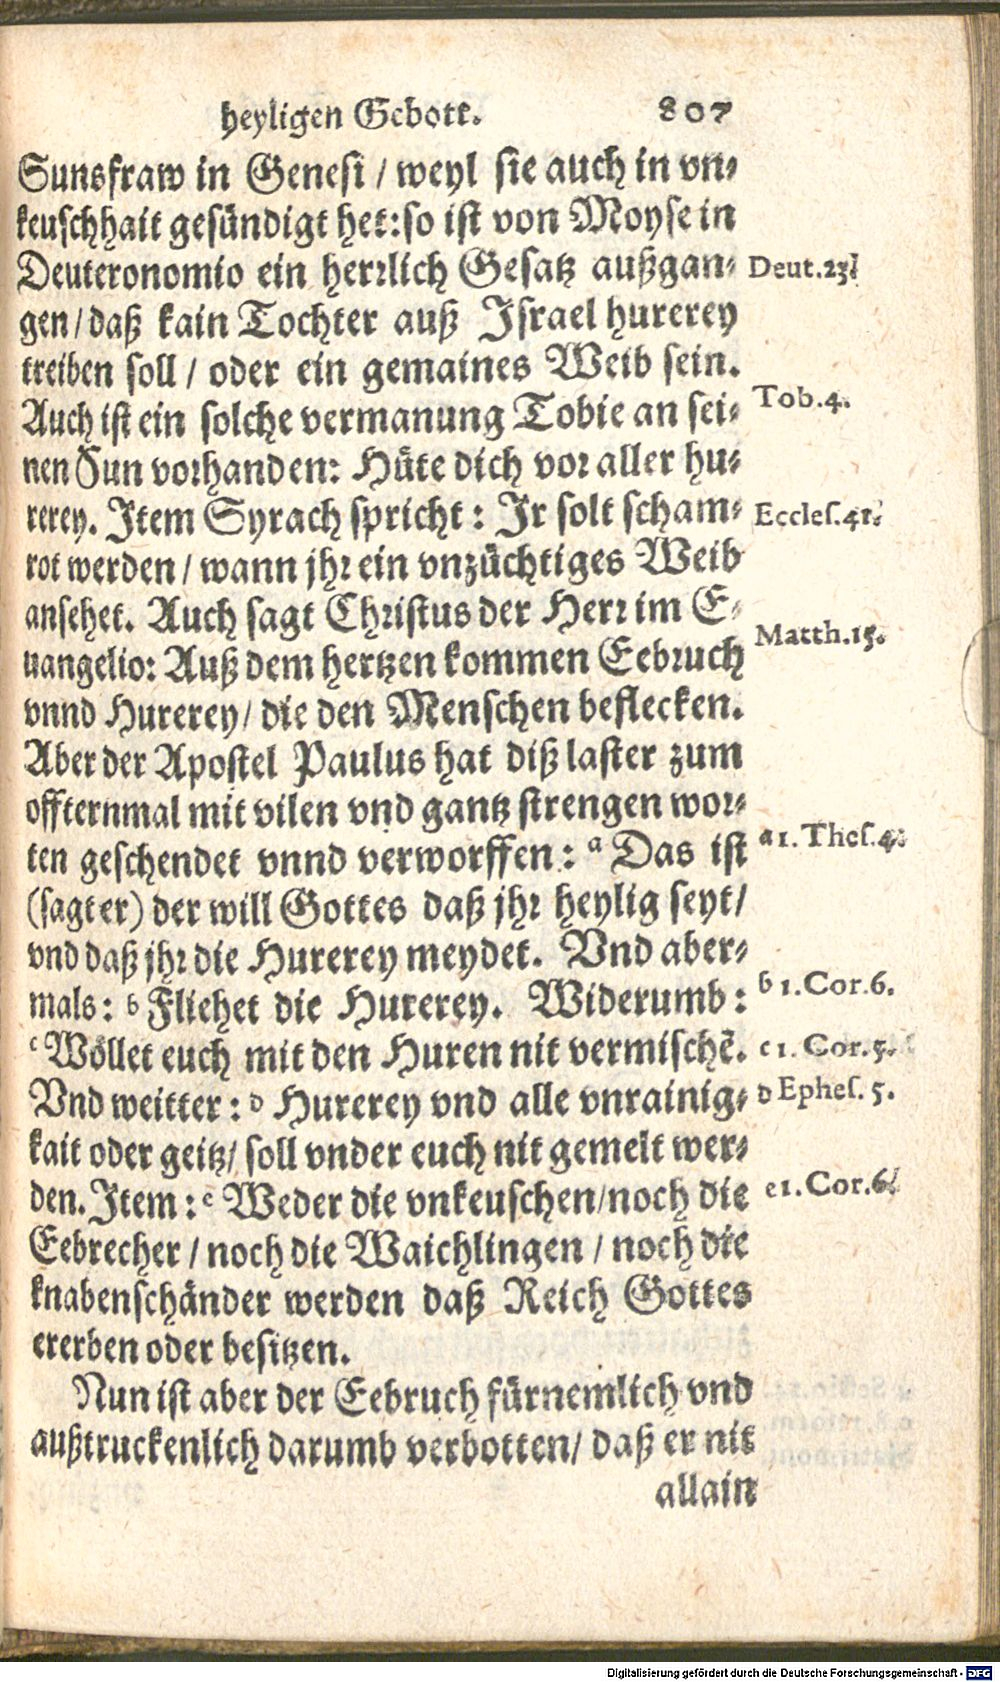 heyligen Gebott. 807
Sunsfraw in Genesi / weyl sie auch in vn-
keuschhait gesündigt het: so ist von Moyse in
Deuteronomio ein herrlich Gesatz außgan-
Deut.23.
gen / daß kain Tochter auß Israel hurerey
treiben soll / oder ein gemaines Weib sein.
Auch ist ein solche vermanung Tobie an sei-
Tob.4.
nen Sun vorhanden: Hüte dich vor aller hu-
rerey. Item Syrach spricht: Ir solt scham-
Eccles.41.
rot werden / wann jhr ein vnzüchtiges Weib
ansehet. Auch sagt Christus der Herr im E-
uangelio: Auß dem hertzen kommen Eebruch
Matth.15.
vnnd Hurerey / die den Menschen beflecken.
Aber der Apostel Paulus hat diß laster zum
offternmal mit vilen vnd gantz strengen wor-
ten geschendet vnnd verworffen: a Das ist
a 1. Thes.4.
(sagt er) der will Gottes daß jhr heylig seyt /
vnd daß jhr die Hurerey meydet. Vnd aber-
mals: b Fliehet die Hurerey. Widerumb:
b 1.Cor.6.
c Wöllet euch mit den Huren nit vermischē.
c 1. Cor.5.
Vnd weitter: d Hurerey vnd alle vnrainig-
d Ephes. 5.
kait oder geitz / soll vnder euch nit gemelt wer-
den. Item: e Weder die vnkeuschen / noch die
e 1.Cor.6.
Eebrecher / noch die Waichlingen / noch die
knabenschänder werden daß Reich Gottes
ererben oder besitzen.
Nun ist aber der Eebruch fürnemlich vnd
außtruckenlich darumb verbotten / daß er nit
allain
Digitalisierung gefördert durch die Deutsche Forschungsgemeinschaft - DFG